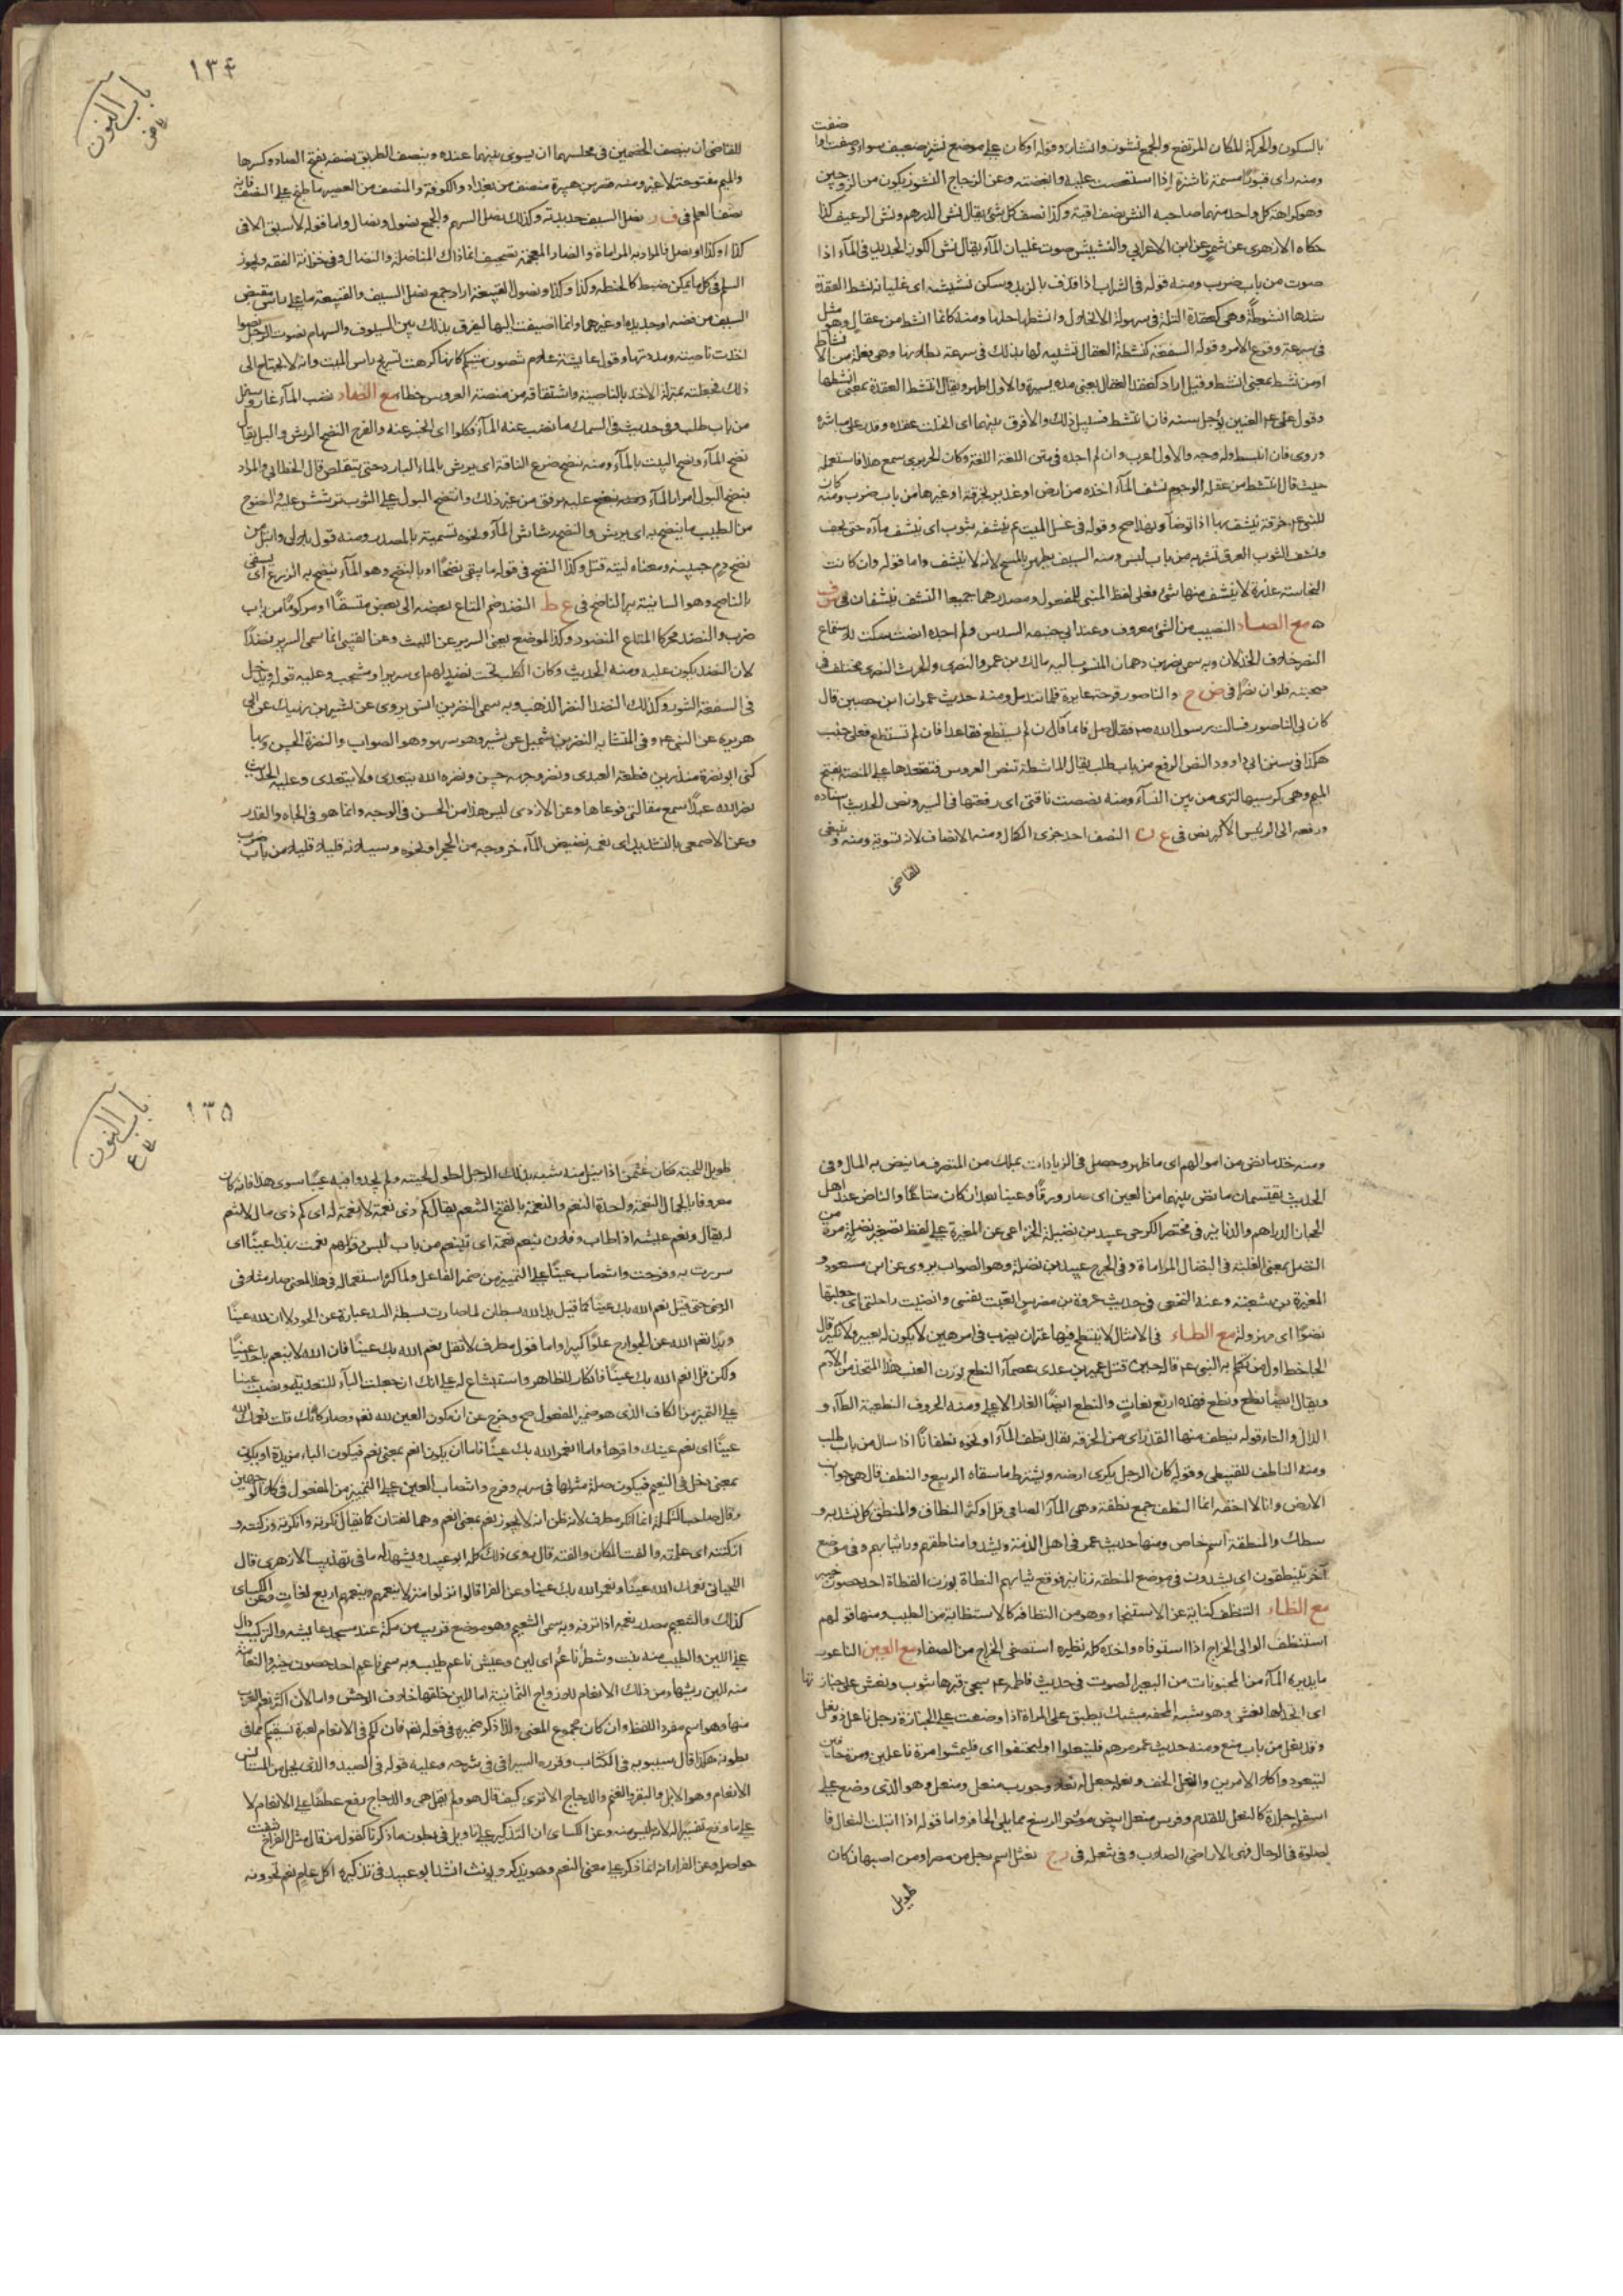 بالسكون والحركة المكان المرتفع والجمع نشوز وانشاز وقوله او كان على موضع نشز ضعيف سواء
ومنه راى قبورا مسنمة ناشزة اذا استعصت عليه وابغضته وعن الزجاج النشوز يكون من الزوجين
وهو كراهة كل واحد منهما صاحبه النش نصف اوقية وكذا نصف كل شئ يقال نش الدرهم ونش الرغيف كذا
حكاه الازهرى عن شمر عن ابن الاعرابي والنشيش صوت غليان الماء يقال نش الكوز الجديد في الماء اذا
صوت من باب ضرب ومنه قوله في الشراب اذا قذف بالزبد وسكن نشيشه اى غليانه نشط العقدة
شدها انشوطة وهي كعقدة التكة في سهولة الانحلال وانشطها حلها ومنه كانما انشط من عقال وهو مثل
في سرعة وقوع الامر وقوله الشفعة كنشطة العقال تشبيه لها بذلك في سرعة بطلانها وهي فعلة من الانشاط
او من نشط بمعنى انشط وقيل اراد كعقد العقال يعنى مدة يسيرة والاول اظهر ويقال انتشط العقدة بمعنى انشطها
وقول على عم العنين يؤجل سنة فان انتشط فسبيل ذلك والا فرق بينهما اى انحلت عقده وقدر على مباشرة
وروى فان انبسط وله وجه والاول اعرب وان لم اجده في متن اللغة وكان الحريرى سمع هذا فاستعمله
حيث قال انتشط من عقلة الوجوم نشف الماء اخذه من ارض او غدير بخرقة او غيرها من باب ضرب ومنه كان
للنبى عم خرقة ينشف بها اذا توضأ وبهذا صح وقوله في غسل الميت ثم ينشفه بثوب اى ينشف ماءه حتى يجف
ونشف الثوب العرق تشربه من باب لبس ومنه السيف يطهر بالمسح لانه لا ينشف واما قوله وان كانت
النجاسة عذرة لا ينشف منها شئ فعلى لفظ المبنى للمفعول ومصدرهما جميعا النشف نشفان في
مع الصاد النصيب من الشئ معروف وعند ابي حنيفة السدس ولم اجده انصت سكت للاستماع
النصر خلاف الخذلان وبه سمى نصر بن دهمان المنسوب اليه مالك بن عمرو النصرى والحرث النصرى مختلف في
صحبته فلوان نصرا في ض ح والناصور قرحة غايرة قلما تندمل ومنه حديث عمران ابن حصين قال
كان بي الناصور فسالت رسول الله صم فقال صل قائما قال فان لم يستطع فقاعدا فان لم تستطع فعلى جنب
هكذا في سنن ابي داود النص الرفع من باب طلب يقال الماشطة تنص العروس فتقعدها على المنصة بفتح
الميم وهي كرسيها لترى من بين النساء ومنه نصصت ناقتى اى رفعتها في السير ونص الحديث اسناده
ورفعه الى الرئيس الاكبر نص في ع ن النصف احد جزءى الكمال ومنه الانصاف لانه تسوية ومنه وينبغى
للقاضى
١٣٤
باب النون
للقاضى ان ينصف الخصمين في مجلسهما ان يسوى بينهما عنده
والميم مفتوحة لا غير ومنه قصر بن هبيرة منصف من بغداد والكوفة والمنصف من العصير ما طبخ على النصف
نصل السيف حديدته وكذلك نصل السهم والجمع نصول ونصال واما قوله لا سبق الا في
كذا وكذا او نصل فالمراد به المراماة والضاد المعجمة تصحيف انما ذاك المناضلة والنضال وفي خزانة الفقه ويجوز
السلم في كل ما يمكن ضبطه كالحنطة وكذا وكذا ونصول القبيعة اراد جمع نصل السيف والقبيعة ما على راس مقبض
السيف من فضة او حديد او غيرهما وانما اضيفت اليها ليفرق بذلك بين السيوف والسهام نصوت الرجل نصوا
اخذت ناصيته ومددتها وقول عايشة علام تنصون ميتكم كانها كرهت تسريح راس الميت وانه لا يحتاج الى
ذلك فجعلته بمنزلة الاخذ بالناصية واشتقاقه من منصة العروس خطاء مع الضاد نضب الماء غار وسفل
من باب طلب وفي حديث في السمك ما نضب عنه الماء فكلوا اى انحسر عنه والفرج النضح الرش والبل يقال
نضح الماء ونضح البيت بالماء ومنه ينضح ضرع الناقة اى يرش بالماء البارد حتى يتقلص قال الخطابي المراد
ينضح البول امرار الماء عليه برفق من غير ذلك وانتضح البول على الثوب ترشش عليه
من الطيب ما ينضح به اى يرش والنضح رشاش الماء ونحوه تسمية بالمصدر ومنه قوله
نضح دم جبينه ومعناه ليته قتل وكذا النضح في قوله ما يسقى نضحا او بالنضح وهو الماء ينضح به الزرع اى يسقى
بالناضح وهو السانية بير الناضح في ع ط النضد ضم المتاع بعضه الى بعض متسقا او مركوما من باب
ضرب والنضد محركا المتاع المنضود وكذا الموضع يعنى السرير عن الليث وعن القتبي انما سمى السرير نضدا
لان النضد يكون عليه ومنه الحديث وكان الكلب تحت نضد لهم اى سرير او مشجب وعليه قوله ويدخل
في الشفعة الشرب وكذلك النضد النضر الذهب وبه سمى النضر بن انس يروى عن بشير بن نهيك عن ابي
هريرة عن النبي عم وفي المتشابه النضر بن شميل عن بشير وهو سهو وهو الصواب والنضرة الحسن وبها
كنى ابو نضرة منذر بن قطعة العبدى ونضر وجهه حسن ونضره الله يتعدى ولا يتعدى وعليه الحديث
نضر الله عبدا سمع مقالتى فوعاها وعن الازدى ليس هذا من الحسن في الوجه وانما هو في الجاه والقدر
وعن الاصمعى بالتشديد اى نعمه نضيض الماء خروجه من الحجر او نحوه وسيلانه قليلا قليلا من باب ضرب
ومنه خذ ما نض من اموالهم اى ما ظهر وحصل في الزيادات بملك من المتصرف ما ينض به المال وفي
الحديث يقتسمان ما نض بينهما من العين اى صار ورقا وعينا بعد ان كان متاعا والناض عند اهل
الحجاز الدراهم والدنانير في مختصر الكرخي عبيد بن نضيلة الخزاعى عن المغيرة على لفظ تصغير نضلة مرة من
النضل بمعنى الغلبة في النضال المراماة وفي الجرح عبيد بن نضلة وهو الصواب يروى عن ابن مسعود و
المغيرة بن شعبة وعنه النخعى في حديث عروة بن مضرس اتعبت نفسى وانضيت راحلتى اى جعلتها
نضوا اى مهزولة مع الطاء في الامثال لا ينتطح فيها عنزان يضرب في امر هين لا يكون له تغيير ولا نكير قال
الجاحظ اول من تكلم به النبي عم قاله حين قتل عمير بن عدى عصماء النطع بوزن العنب هذا المتخذ من الادم
ويقال ايضا نطع ونطع فهذه اربع لغات والنطع ايضا الغار الاعلى ومنه الحروف النطعية الطاء و
الدال والتاء قوله ينطف منها القذر اى من الخرقة يقال نطف الماء او نحوه نطفانا اذا سال من باب طلب
ومنه الناطف للقبيطى وقوله كان الرجل يكرى ارضه ويشترط ما سقاه الربيع والنطف قال هي جوانب
الارض وانا لا احقه انما النطف جمع نطفة وهي الماء الصافي قل او كثر النطاق والمنطق كل ما تشد به و
سطك والمنطقة اسم خاص ومنها حديث عمر في اهل الذمة ويشدوا مناطقهم وراء ثيابهم وفي موضع
آخر ينتطقون اى يشدون في موضع المنطقة زنانير فوق ثيابهم النطاة بوزن القطاة احد حصون خيبر
مع الظاء التنظف كناية عن الاستنجاء وهو من النظافة كالاستطابة من الطيب ومنها قولهم
استنظف الوالي الخراج اذا استوفاه واخذه كله نظيره استصفى الخراج من الصفاء مع العين الناعور
ما يديره الماء من المنجنونات من النعير الصوت في حديث فاطمة عم سجى قبرها بثوب ونعش على جنازتها
اى اتخذ لها نعش وهو شبه المحفة مشبك يطبق على المرأة اذا وضعت على الجنازة رجل ناعل ذو نعل
وقد نعل من باب منع ومنه حديث عمر مرهم فلينتعلوا او ليحتفوا اى فليمشوا مرة ناعلين ومرة حافين
ليتعودوا كلا الامرين وانعل الخف ونعله جعل له نعلا وجورب منعل ومنعل وهو الذى وضع على
اسفله جلدة كالنعل للقدم وفرس منعل ابيض مؤخر الرسغ مما يلي الحافر واما قوله اذا ابتلت النعال فا
لصلوة في الرحال فهي الاراضى الصلاب وفي ثعله في رح نعثل اسم رجل من مصر او من اصبهان كان
طويل
١٣٥
باب النون
ع
طويل اللحية فكان عثمن اذا نيل منه شبه بذلك الرجل لطول لحيته ولم يجدوا فيه عيبا سوى هذا فانه كان
معروفا بالجمال النعمة واحدة النعم والنعمة بالفتح التنعم يقال كم ذى نعمة لا نعمة له اى كم ذى مال لا تنعم
له يقال ونعم عيشه اذا طاب وفلان ينعم نعمة اى يتنعم من باب لبس وقولهم نعمت بهذا عينا اى
سررت به وفرحت وانتصاب عينا على التمييز من ضمير الفاعل ولما كثر استعماله في هذا المعنى صار مثلا في
الرضى حتى قيل نعم الله بك عينا كما قيل يد الله بسطان لما صارت بسطة اليد عبارة عن الجود لا ان لله عينا
ويدا نعم الله عن الجوارح علوا كبيرا واما قول مطرف لا تقل نعم الله بك عينا فان الله لا ينعم باحد عينا
ولكن قل انعم الله بك عينا فانكار للظاهر واستبشاع له على انك ان جعلت الباء للتعدية ونصبت عينا
على التمييز من الكاف الذى هو ضمير المفعول صح وخرج عن ان يكون العين لله نعم وصار كانك قلت نعمك الله
عينا اى نعم عينك واقرها واما انعم الله بك عينا فاما ان يكون انعم بمعنى نعم فيكون الباء مزيدة او يكون
بمعنى دخل في النعيم فيكون صلة مثلها في سر به وفرح وانتصاب العين على التمييز من المفعول في كلا الوجهين
وقال صاحب التكملة انما انكر مطرف لانه ظن انه لا يجوز نعم بمعنى انعم وهما لغتان كما يقال نكرته وانكرته وزكنته و
ازكنته اى علمته والفت المكان والفته قال وروى ذلك كله ابو عبيد ويشهد له ما في تهذيب الازهرى قال
اللحياني نعمك الله عينا ونعم الله بك عينا وعن الفرا قالوا نزلوا منزلا ينعمهم وينعمهم اربع لغات وعن الكساى
كذلك والتنعيم مصدر نعمه اذا ترفه وبه سمى التنعيم وهو موضع قريب من مكة عند مسجد عايشة والتركيب دال
على اللين والطيب منه نبت وشعر ناعم اى لين وعيش ناعم طيب وبه سمى ناعم احد حصون خيبر والنعامة
منه للين ريشها ومن ذلك الانعام للازواج الثمانية اما للين خلقها بخلاف الوحش واما لان اكثر نعم العرب
منها وهو اسم مفرد اللفظ وان كان مجموع المعنى ولذا ذكر ضميره في قوله تعم وان لكم في الانعام لعبرة نسقيكم مما في
بطونه هكذا قال سيبويه في الكتاب وقرره السيرافي في شرحه وعليه قوله في الصيد والذى يحل من المستأنس
الانعام وهو الابل والبقر والغنم والدجاج الا ترى كيف قال هو ولم يقل هي والدجاج رفع عطفا على الانعام لا
على ما وقع تفسيرا له لانه ليس منه وعن الكساى ان التذكير على تاويل في بطون ما ذكرنا كقول من قال مثل الفراخ نتفت
حواصله وعن الفراء انه انما ذكر على معنى النعم وهو يذكر ويونث انشد ابو عبيد في تذكيره اكل عام نعم تحوونه